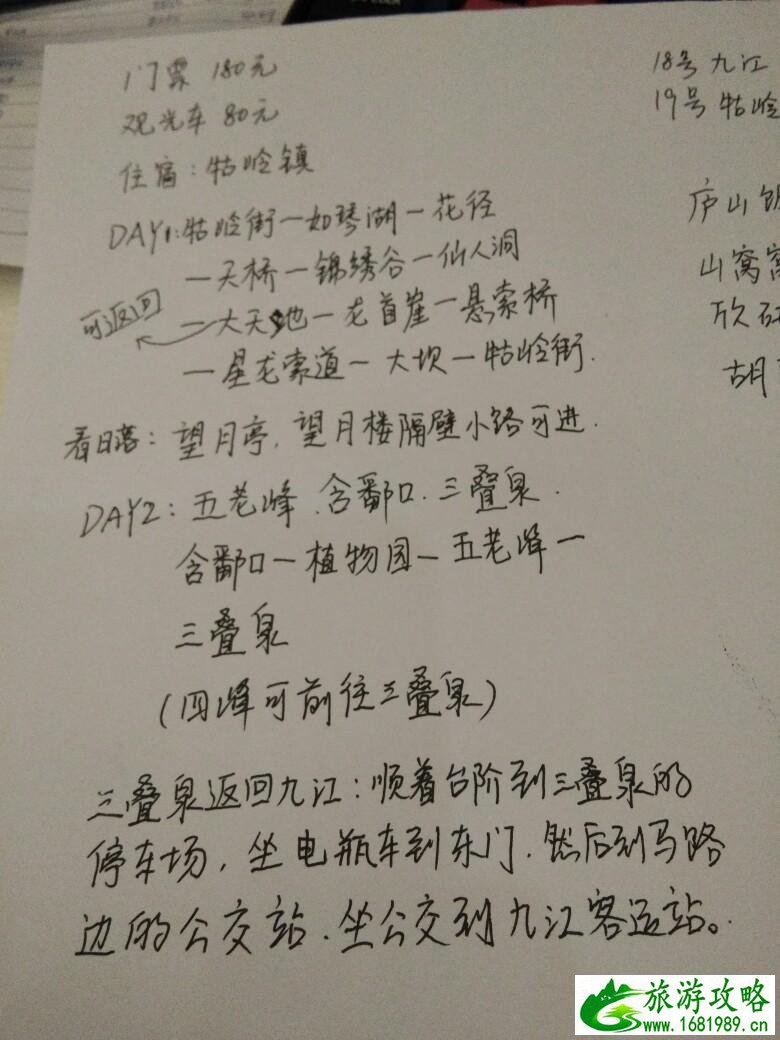 门票 180元
观光车 80元
住宿：牯岭镇
DAY1：牯岭街一如琴湖一花径
一天桥一锦绣谷一仙人洞
可返回
一大天池一龙首崖一悬索桥
一星龙索道一大坝一牯岭街.
看日落：望月亭，望月楼隔壁小路可进.
DAY2：五老峰、含鄱口、三叠泉.
含鄱口一植物园一五老峰一
三叠泉
(四峰可前往三叠泉)
三叠泉返回九江：顺着台阶到三叠泉的
停车场，坐电瓶车到东门，然后到马路
边的公交站，坐公交到九江客运站。
18号 九江
19号 牯岭
庐山
山窝
欣
胡
旅游攻略
www.1681989.cn